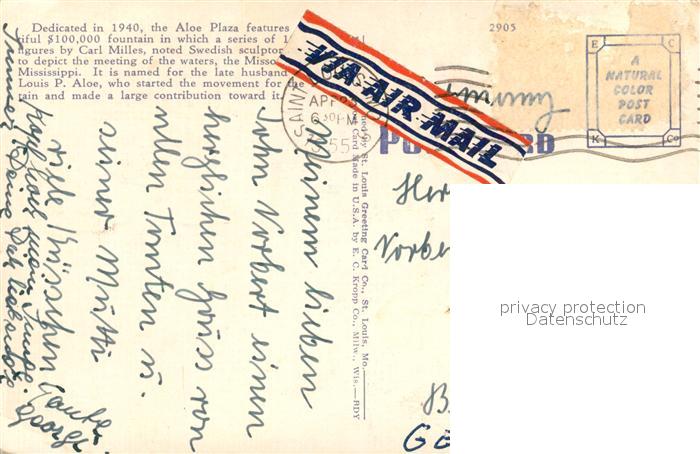 Dedicated in 1940, the Aloe Plaza features
tiful $100,000 fountain in which a series of 1
figures by Carl Milles, noted Swedish sculptor
to depict the meeting of the waters, the Misso
Mississippi. It is named for the late husband
Louis P. Aloe, who started the movement for the
tain and made a large contribution toward it.
2905
VIA AIR MAIL
SAINT
APR
6 30 PM
1955
E C
A
NATURAL
COLOR
POST
CARD
K Co
St. Louis Greeting Card Co., St. Louis, Mo.
Card Made in U.S.A. by E. C. Kropp Co., Milw., Wis.—RDY
Meinem lieben
John Norbert einen
herzlichen Gruss von
allen Tanten u.
seiner Mutti
viele Küsschen
Immer Deine Dich liebende
Her
Norbe
B
GE
privacy protection
Datenschutz